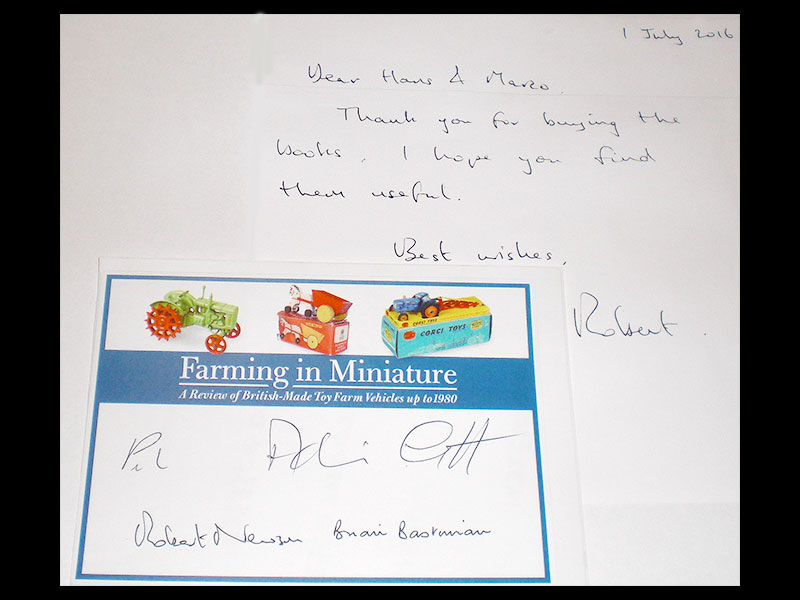 1 July 2016
Dear Hans & Marzo,
Thank you for buying the
books, I hope you find
them useful.
Best wishes,
Robert.
CORGI TOYS
CORGI TOYS
Farming in Miniature
A Review of British-Made Toy Farm Vehicles up to 1980
Robert Newson Brian Bastinian